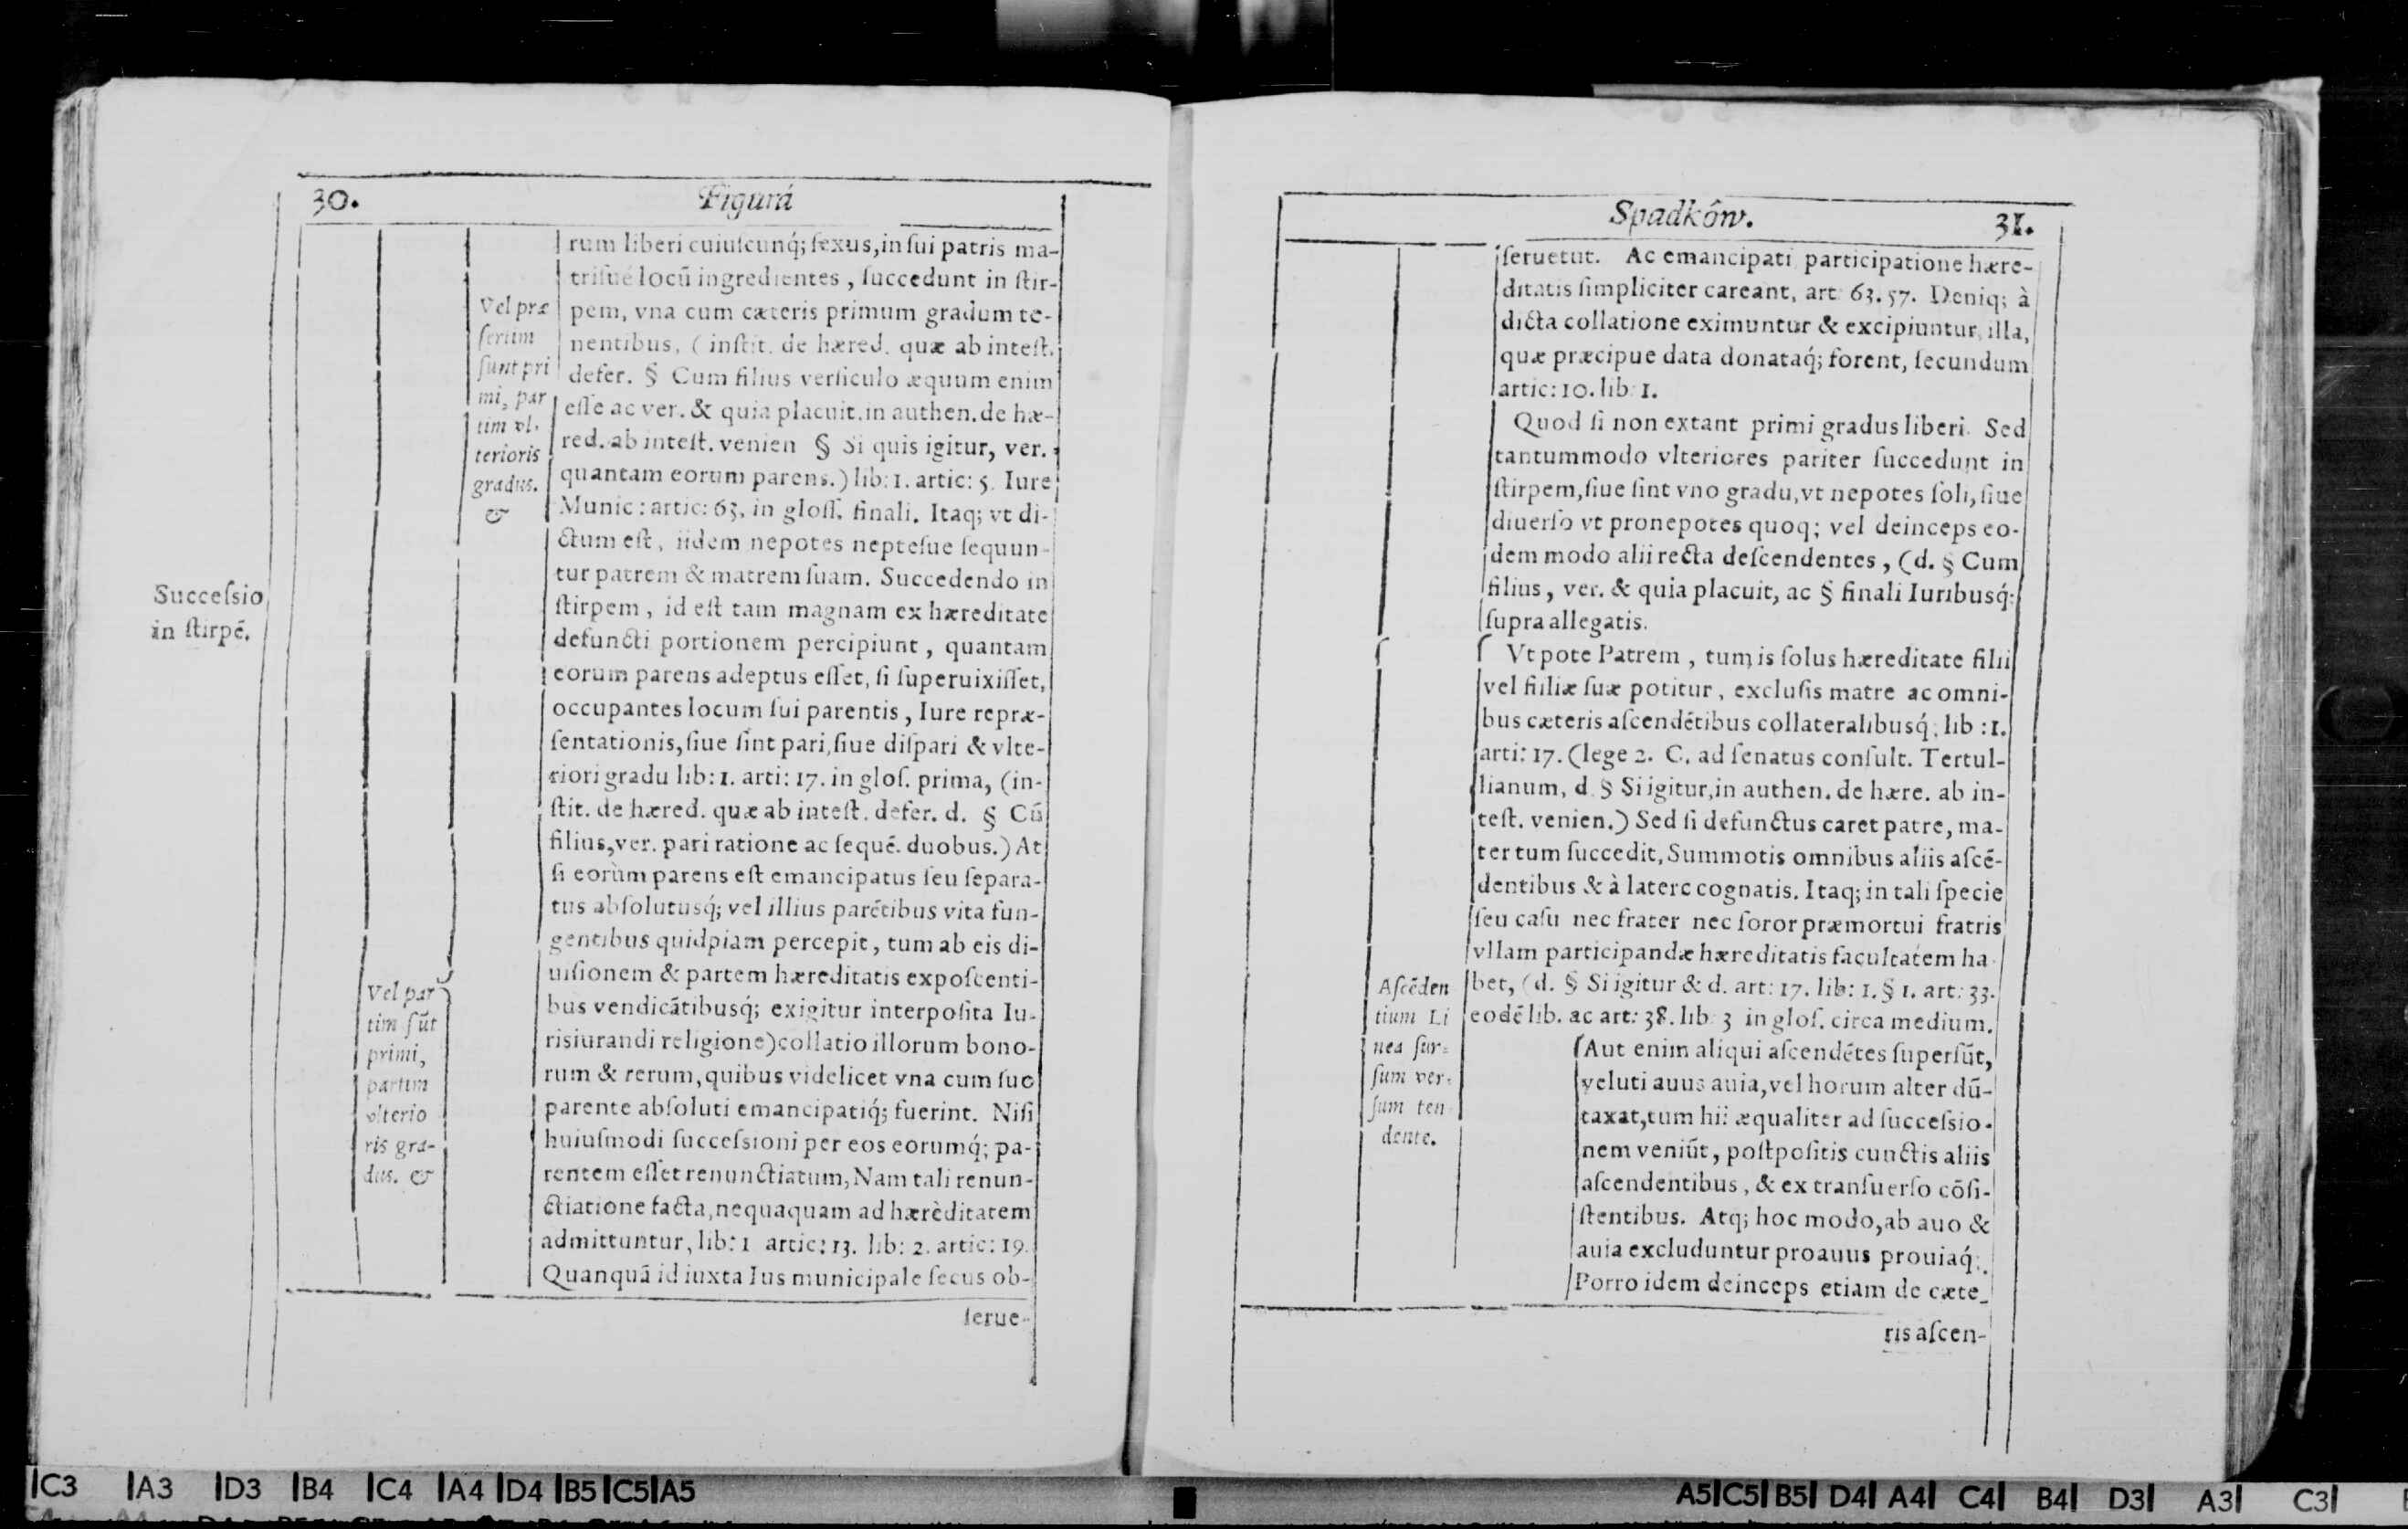 30.
Figurá
Succeſsio
in ſtirpē.
Vel præ
ſertim
ſunt pri
mi, par
tim vl-
terioris
gradus.
&
Vel par
tim ſūt
primi,
partim
vlterio
ris gra-
dus. &
rum liberi cuiuſcunq́; ſexus, in ſui patris ma-
triſué locū ingredientes, ſuccedunt in ſtir-
pem, vna cum cæteris primum gradum te-
nentibus, (inſtit. de hæred. quæ ab inteſt.
defer. § Cum filius verſiculo æquum enim
eſſe ac ver. & quia placuit. in authen. de hæ-
red. ab inteſt. venien § Si quis igitur, ver.
quantam eorum parens.) lib: 1. artic: 5. Iure
Munic: artic: 63. in gloſſ. finali. Itaq; vt di-
ctum eſt, iidem nepotes nepteſue ſequun-
tur patrem & matrem ſuam. Succedendo in
ſtirpem, id eſt tam magnam ex hæreditate
defuncti portionem percipiunt, quantam
eorum parens adeptus eſſet, ſi ſuperuixiſſet,
occupantes locum ſui parentis, Iure repræ-
ſentationis, ſiue ſint pari, ſiue diſpari & vlte-
riori gradu lib: 1. arti: 17. in gloſ. prima, (in-
ſtit. de hæred. quæ ab inteſt. defer. d. § Cū
filius, ver. pari ratione ac ſequē. duobus.) At
ſi eorùm parens eſt emancipatus ſeu ſepara-
tus abſolutusq́; vel illius parētibus vita fun-
gentibus quidpiam percepit, tum ab eis di-
uiſionem & partem hæreditatis expoſcenti-
bus vendicātibusq́; exigitur interpoſita Iu-
risiurandi religione) collatio illorum bono-
rum & rerum, quibus videlicet vna cum ſuo
parente abſoluti emancipatiq́; fuerint. Niſi
huiuſmodi ſucceſsioni per eos eorumq́; pa-
rentem eſſet renunctiatum, Nam tali renun-
ctiatione facta, nequaquam ad hærèditatem
admittuntur, lib: 1 artic: 13. lib: 2. artic: 19.
Quanquā id iuxta Ius municipale ſecus ob-
ſerue-
Spadkôw.
31.
ſeruetut. Ac emancipati participatione hære-
ditatis ſimpliciter careant, art: 63. 57. Deniq; à
dicta collatione eximuntur & excipiuntur, illa,
quæ præcipue data donataq́; forent, ſecundum
artic: 10. lib: 1.
Quod ſi non extant primi gradus liberi. Sed
tantummodo vlteriores pariter ſuccedunt in
ſtirpem, ſiue ſint vno gradu, vt nepotes ſoli, ſiue
diuerſo vt pronepotes quoq; vel deinceps eo-
dem modo alii recta deſcendentes, (d. § Cum
filius, ver. & quia placuit, ac § finali Iuribusq́;
ſupra allegatis.
Vt pote Patrem, tum is ſolus hæreditate filii
vel filiæ ſuæ potitur, excluſis matre ac omni-
bus cæteris aſcendētibus collateralibusq́; lib: 1.
arti: 17. (lege 2. C. ad ſenatus conſult. Tertul-
lianum, d. § Si igitur, in authen. de hære. ab in-
teſt. venien.) Sed ſi defunctus caret patre, ma-
ter tum ſuccedit, Summotis omnibus aliis aſcē-
dentibus & à latere cognatis. Itaq; in tali ſpecie
ſeu caſu nec frater nec ſoror præmortui fratris
vllam participandæ hæreditatis facultatem ha
bet, (d. § Si igitur & d. art: 17. lib: 1. § 1. art: 33.
eodē lib. ac art: 38. lib: 3 in gloſ. circa medium.
Aſcēden
tium Li
nea ſur-
ſum ver-
ſum ten
dente.
Aut enim aliqui aſcendētes ſuperſūt,
veluti auus auia, vel horum alter dū-
taxat, tum hii æqualiter ad ſucceſsio-
nem veniūt, poſtpoſitis cunctis aliis
aſcendentibus, & ex tranſuerſo cōſi-
ſtentibus. Atq; hoc modo, ab auo &
auia excluduntur proauus prouiaq́;.
Porro idem deinceps etiam de cæte-
ris aſcen-
|C3 |A3 |D3 |B4 |C4 |A4 |D4 |B5 |C5 |A5
A5| C5| B5| D4| A4| C4| B4| D3| A3| C3|